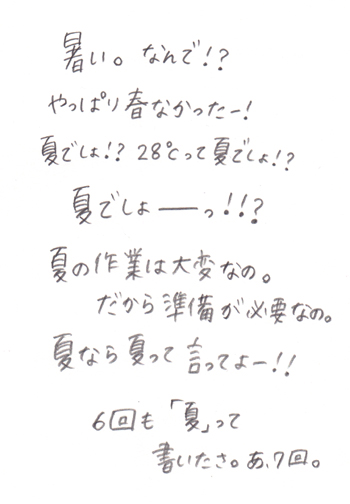 暑い。なんで!?
やっぱり春なかったー!
夏でしょ!? 28℃って夏でしょ!?
夏でしょ――っ!!?
夏の作業は大変なの。
だから準備が必要なの。
夏なら夏って言ってよー!!
6回も「夏」って
書いたさ。あ、7回。